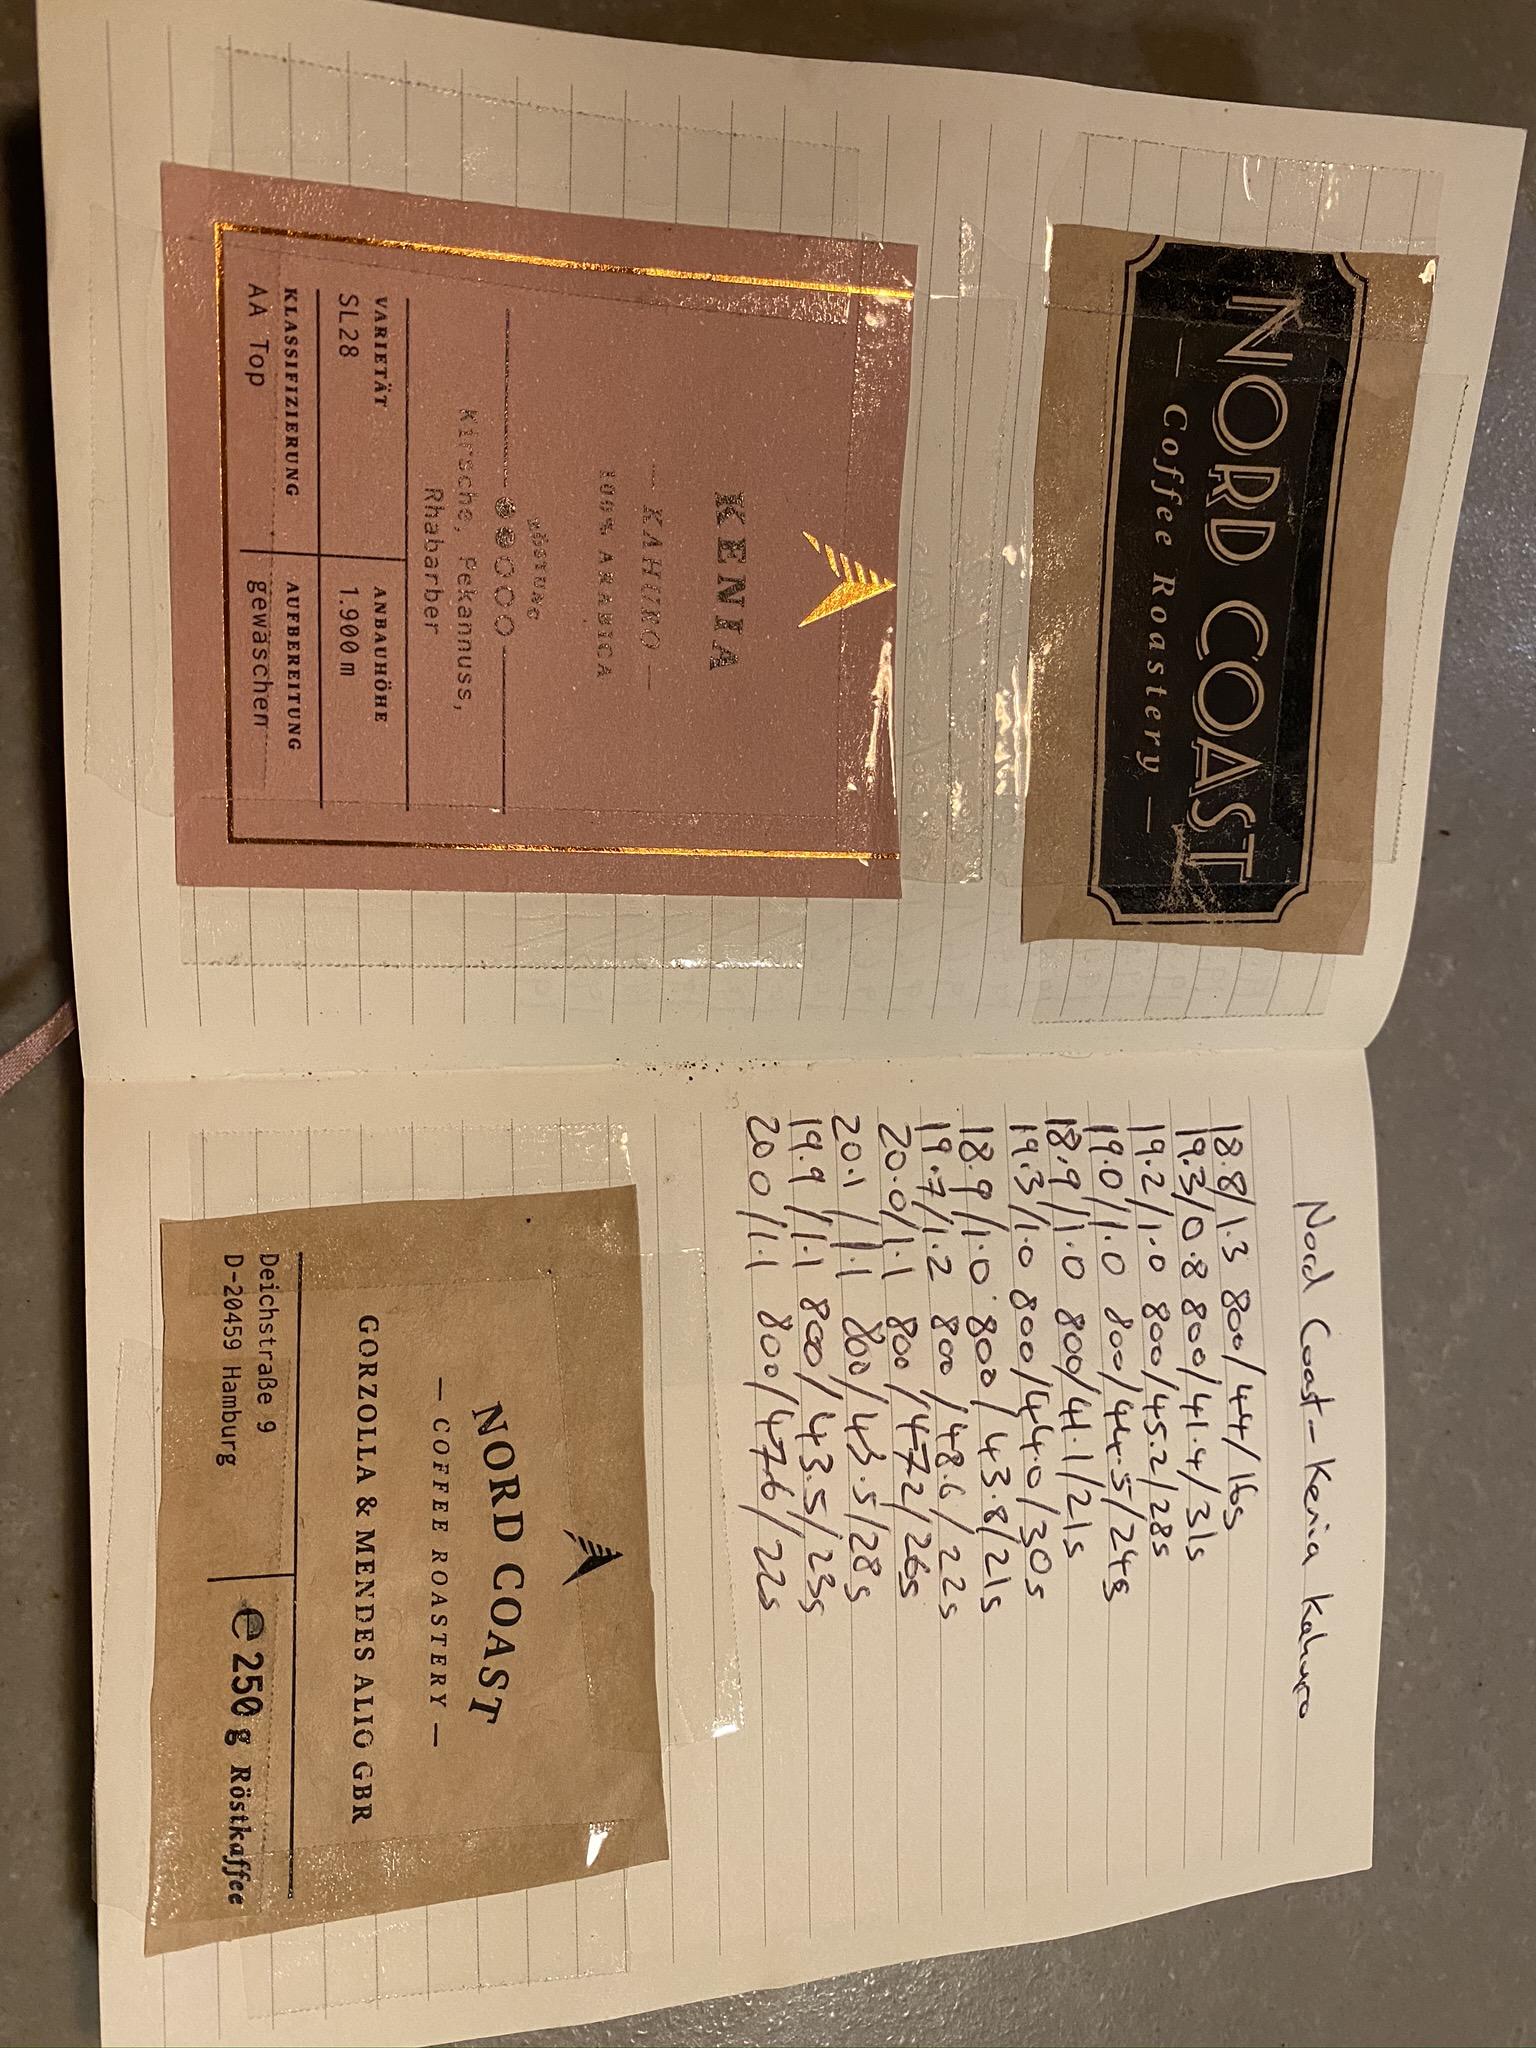 NORD COAST
— Coffee Roastery —
KENIA
— KAHURO —
100% ARABICA
RÖSTUNG
Kirsche, Pekannuss,
Rhabarber
VARIETÄT
SL28
ANBAUHÖHE
1.900 m
KLASSIFIZIERUNG
AA Top
AUFBEREITUNG
gewaschen
Nord Coast - Kenia Kahuro
18.8/1.3 800/44/16s
19.3/0.8 800/41.4/31s
19.2/1.0 800/45.2/28s
19.0/1.0 800/44.5/24s
18.9/1.0 800/41.1/21s
19.3/1.0 800/44.0/30s
18.9/1.0 800/43.8/21s
19.7/1.2 800/48.6/22s
20.0/1.1 800/472/26s
20.1/1.1 800/43.5/28s
19.9/1.1 800/43.5/23s
20.0/1.1 800/47.6/22s
NORD COAST
— COFFEE ROASTERY —
GORZOLLA & MENDES ALIO GBR
Deichstraße 9
D-20459 Hamburg
℮ 250 g Röstkaffee